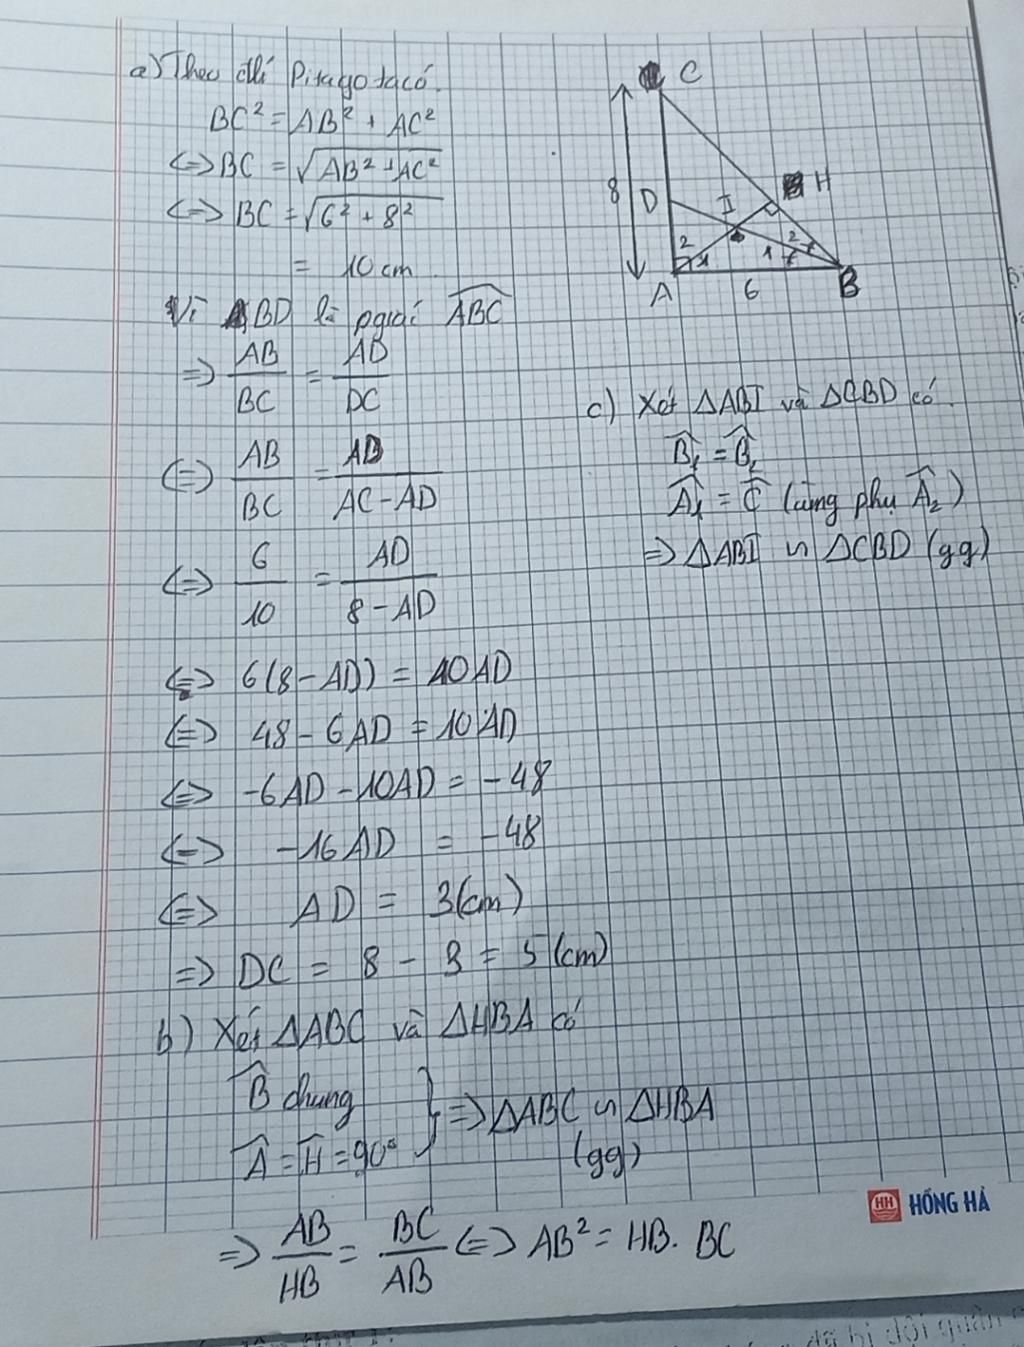 a) Theo đlí Pitago ta có.
BC² = AB² + AC²
<=> BC = √AB² + AC²
<=> BC = √6² + 8²
= 10 cm
Vì BD là pgiác ABC
=> AB/BC = AD/DC
<=> AB/BC = AD/AC - AD
<=> 6/10 = AD/8 - AD
<=> 6(8 - AD) = 10AD
<=> 48 - 6AD = 10AD
<=> -6AD - 10AD = -48
<=> -16AD = -48
<=> AD = 3(cm)
=> DC = 8 - 3 = 5(cm)
b) Xét ΔABC và ΔHBA có
B̂ chung
Â = Ĥ = 90°
=> ΔABC ∽ ΔHBA
(gg)
=> AB/HB = BC/AB <=> AB² = HB. BC
C
8
D
I
H
2
1
1
2
A
6
B
c) Xét ΔABI và ΔCBD có.
B̂₁ = B̂₂
Â₁ = Ĉ (cùng phụ Â₂)
=> ΔABI ∽ ΔCBD (gg)
HH HỒNG HÀ
đã bị đội quân